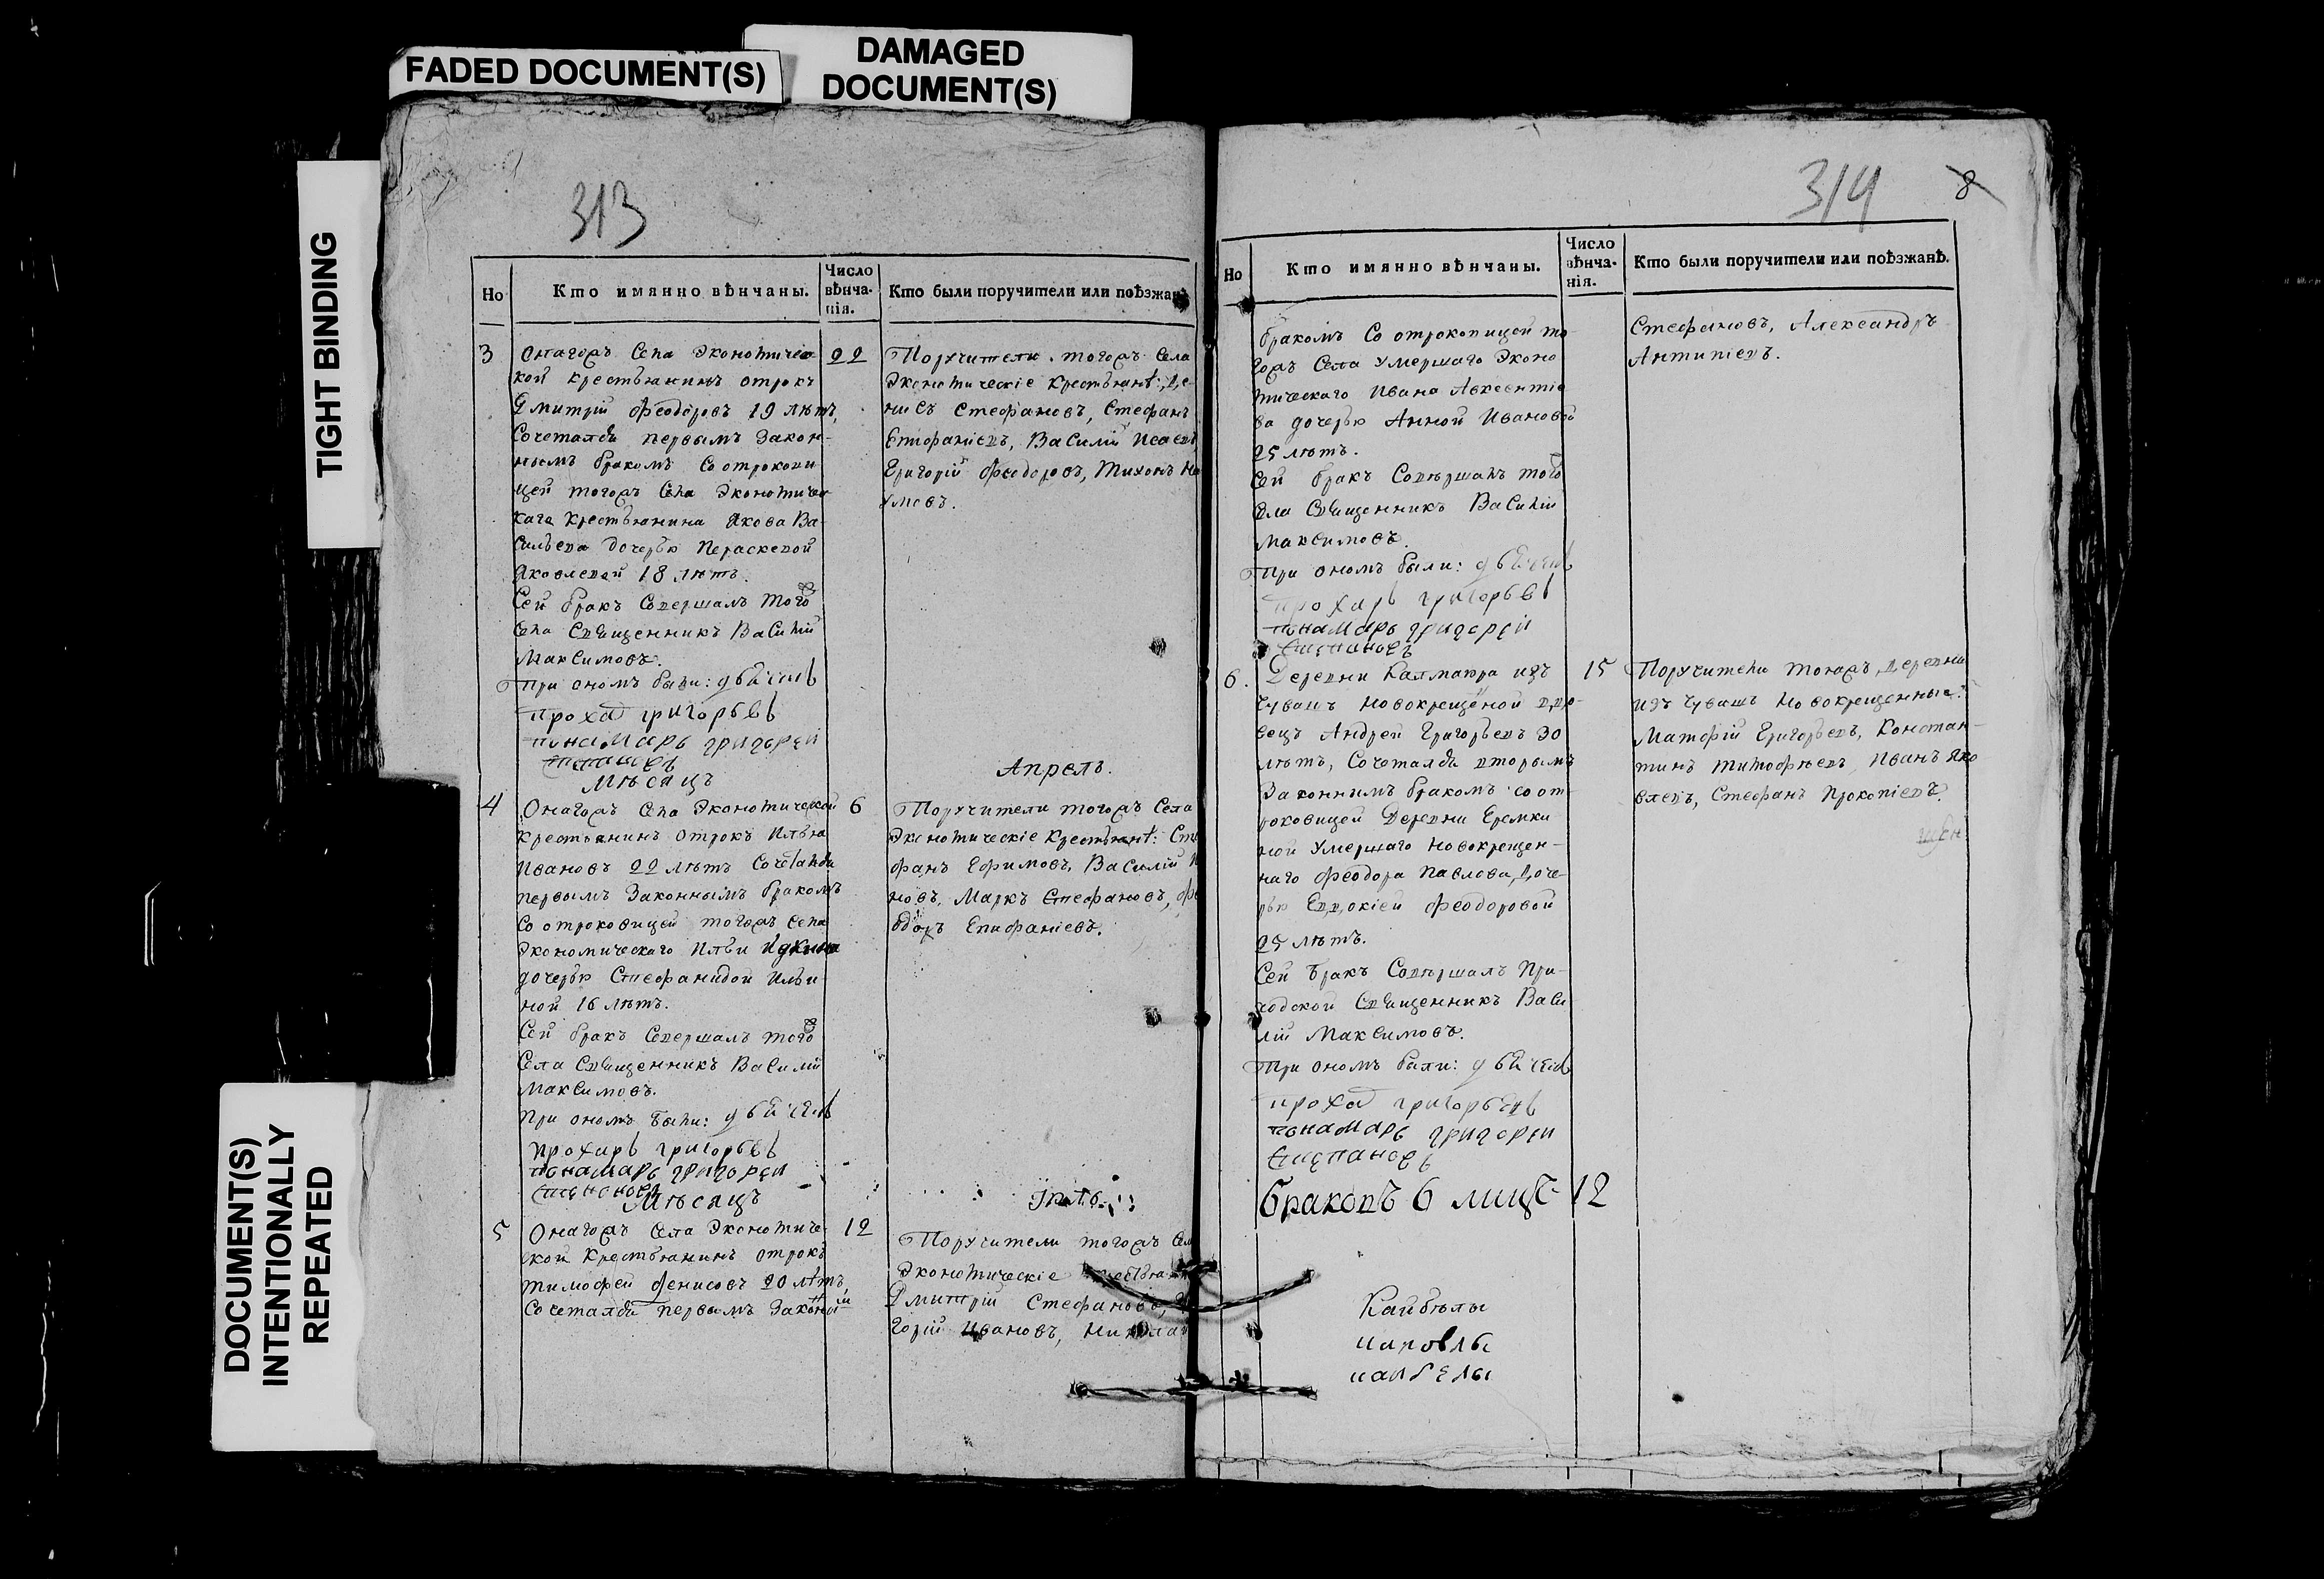 FADED DOCUMENT(S)
DAMAGED
DOCUMENT(S)
TIGHT BINDING
DOCUMENT(S)
INTENTIONALLY
REPEATED
313
Но
Кто имянно вѣнчаны.
Число
вѣнча-
нія.
Кто были поручители или поѣзжан
3
Онагожъ Села Экономичес
кой крестьянинъ отрокъ
Дмитрій Феодоровъ 19 лѣтъ,
Сочетался первымъ закон-
нымъ бракомъ Со отрокови
цей тогожъ Села Экономичес
каго крестьянина Якова Ва-
сильева дочерью Пераскевой
Яковлевой 18 лѣтъ.
Сей бракъ Совершалъ того
Села Священникъ Василій
Максимовъ.
При ономъ были: дьячекъ
Прохаръ григорьевъ
понамарь григорей
Степановъ
22
Поручители тогожъ Села
Экономическіе крестьянѣ: Де-
нисъ Стефановъ, Стефанъ
Епифаніевъ, Василій Исаевъ
Григорій Феодоровъ, Тихонъ На
умовъ.
Мѣсяцъ
Апрель.
4
Онагожъ Села Экономической
крестьянинъ отрокъ Илья
Ивановъ 22 лѣтъ Сочетался
первымъ законнымъ бракомъ
Со отроковицей тогожъ Села
Экономическаго Ильи
дочерью Стефанидой Ильи-
ной 16 лѣтъ.
Сей бракъ Совершалъ того
Села Священникъ Василій
Максимовъ.
При ономъ были: дьячекъ
Прохаръ григорьевъ
понамарь григорей
Степановъ
6
Поручители тогожъ Села
Экономическіе крестьянѣ: Сте
фанъ Ефимовъ, Василій И
новъ, Маркъ Стефановъ, Фе
одоръ Епифаніевъ.
Мѣсяцъ
Іюль
5
Онагожъ Села Экономиче-
ской крестьянинъ отрокъ
Тимофей Денисовъ 20 лѣтъ
Сочетался первымъ законны
12
Поручители тогожъ Сел
Экономическіе крестьян
Дмитрій Стефановъ,
горій Ивановъ, Николай
314
8
Но
Кто имянно вѣнчаны.
Число
вѣнча-
нія.
Кто были поручители или поѣзжанѣ.
бракомъ Со отроковицей то-
гожъ Села умершаго Эконо
мическаго Ивана Авксентіе
ва дочерью Анной Ивановой
25 лѣтъ.
Сей бракъ Совѣршалъ того
Села Священникъ Василій
Максимовъ.
При ономъ были: дьячекъ
Прохаръ григорьевъ
понамарь григорей
Степановъ
Стефановъ, Александръ
Антипіевъ.
6.
Деревни Калмаюра изъ
Чувашъ Новокрещеной вдо-
вецъ Андрей Григорьевъ 30
лѣтъ, Сочетался вторымъ
Законнымъ бракомъ со от
роковицей Деревни Еремки
ной умершаго Новокрещен-
наго Феодора Павлова, Доче-
рью Евдокіей Феодоровой
25 лѣтъ.
Сей бракъ Совѣршалъ При-
ходской Священникъ Васи
лій Максимовъ.
При ономъ были: дьячекъ
Прохаръ григорьевъ
понамарь григорей
Степановъ
15
Поручители тояжъ Деревни
изъ Чувашъ Новокрещенные:
Матфій Григорьевъ, Констан-
тинъ Тимофѣевъ, Иванъ Яко
влевъ, Стефанъ Прокопіевъ.
браковъ 6 лицъ 12
Кайбѣлы